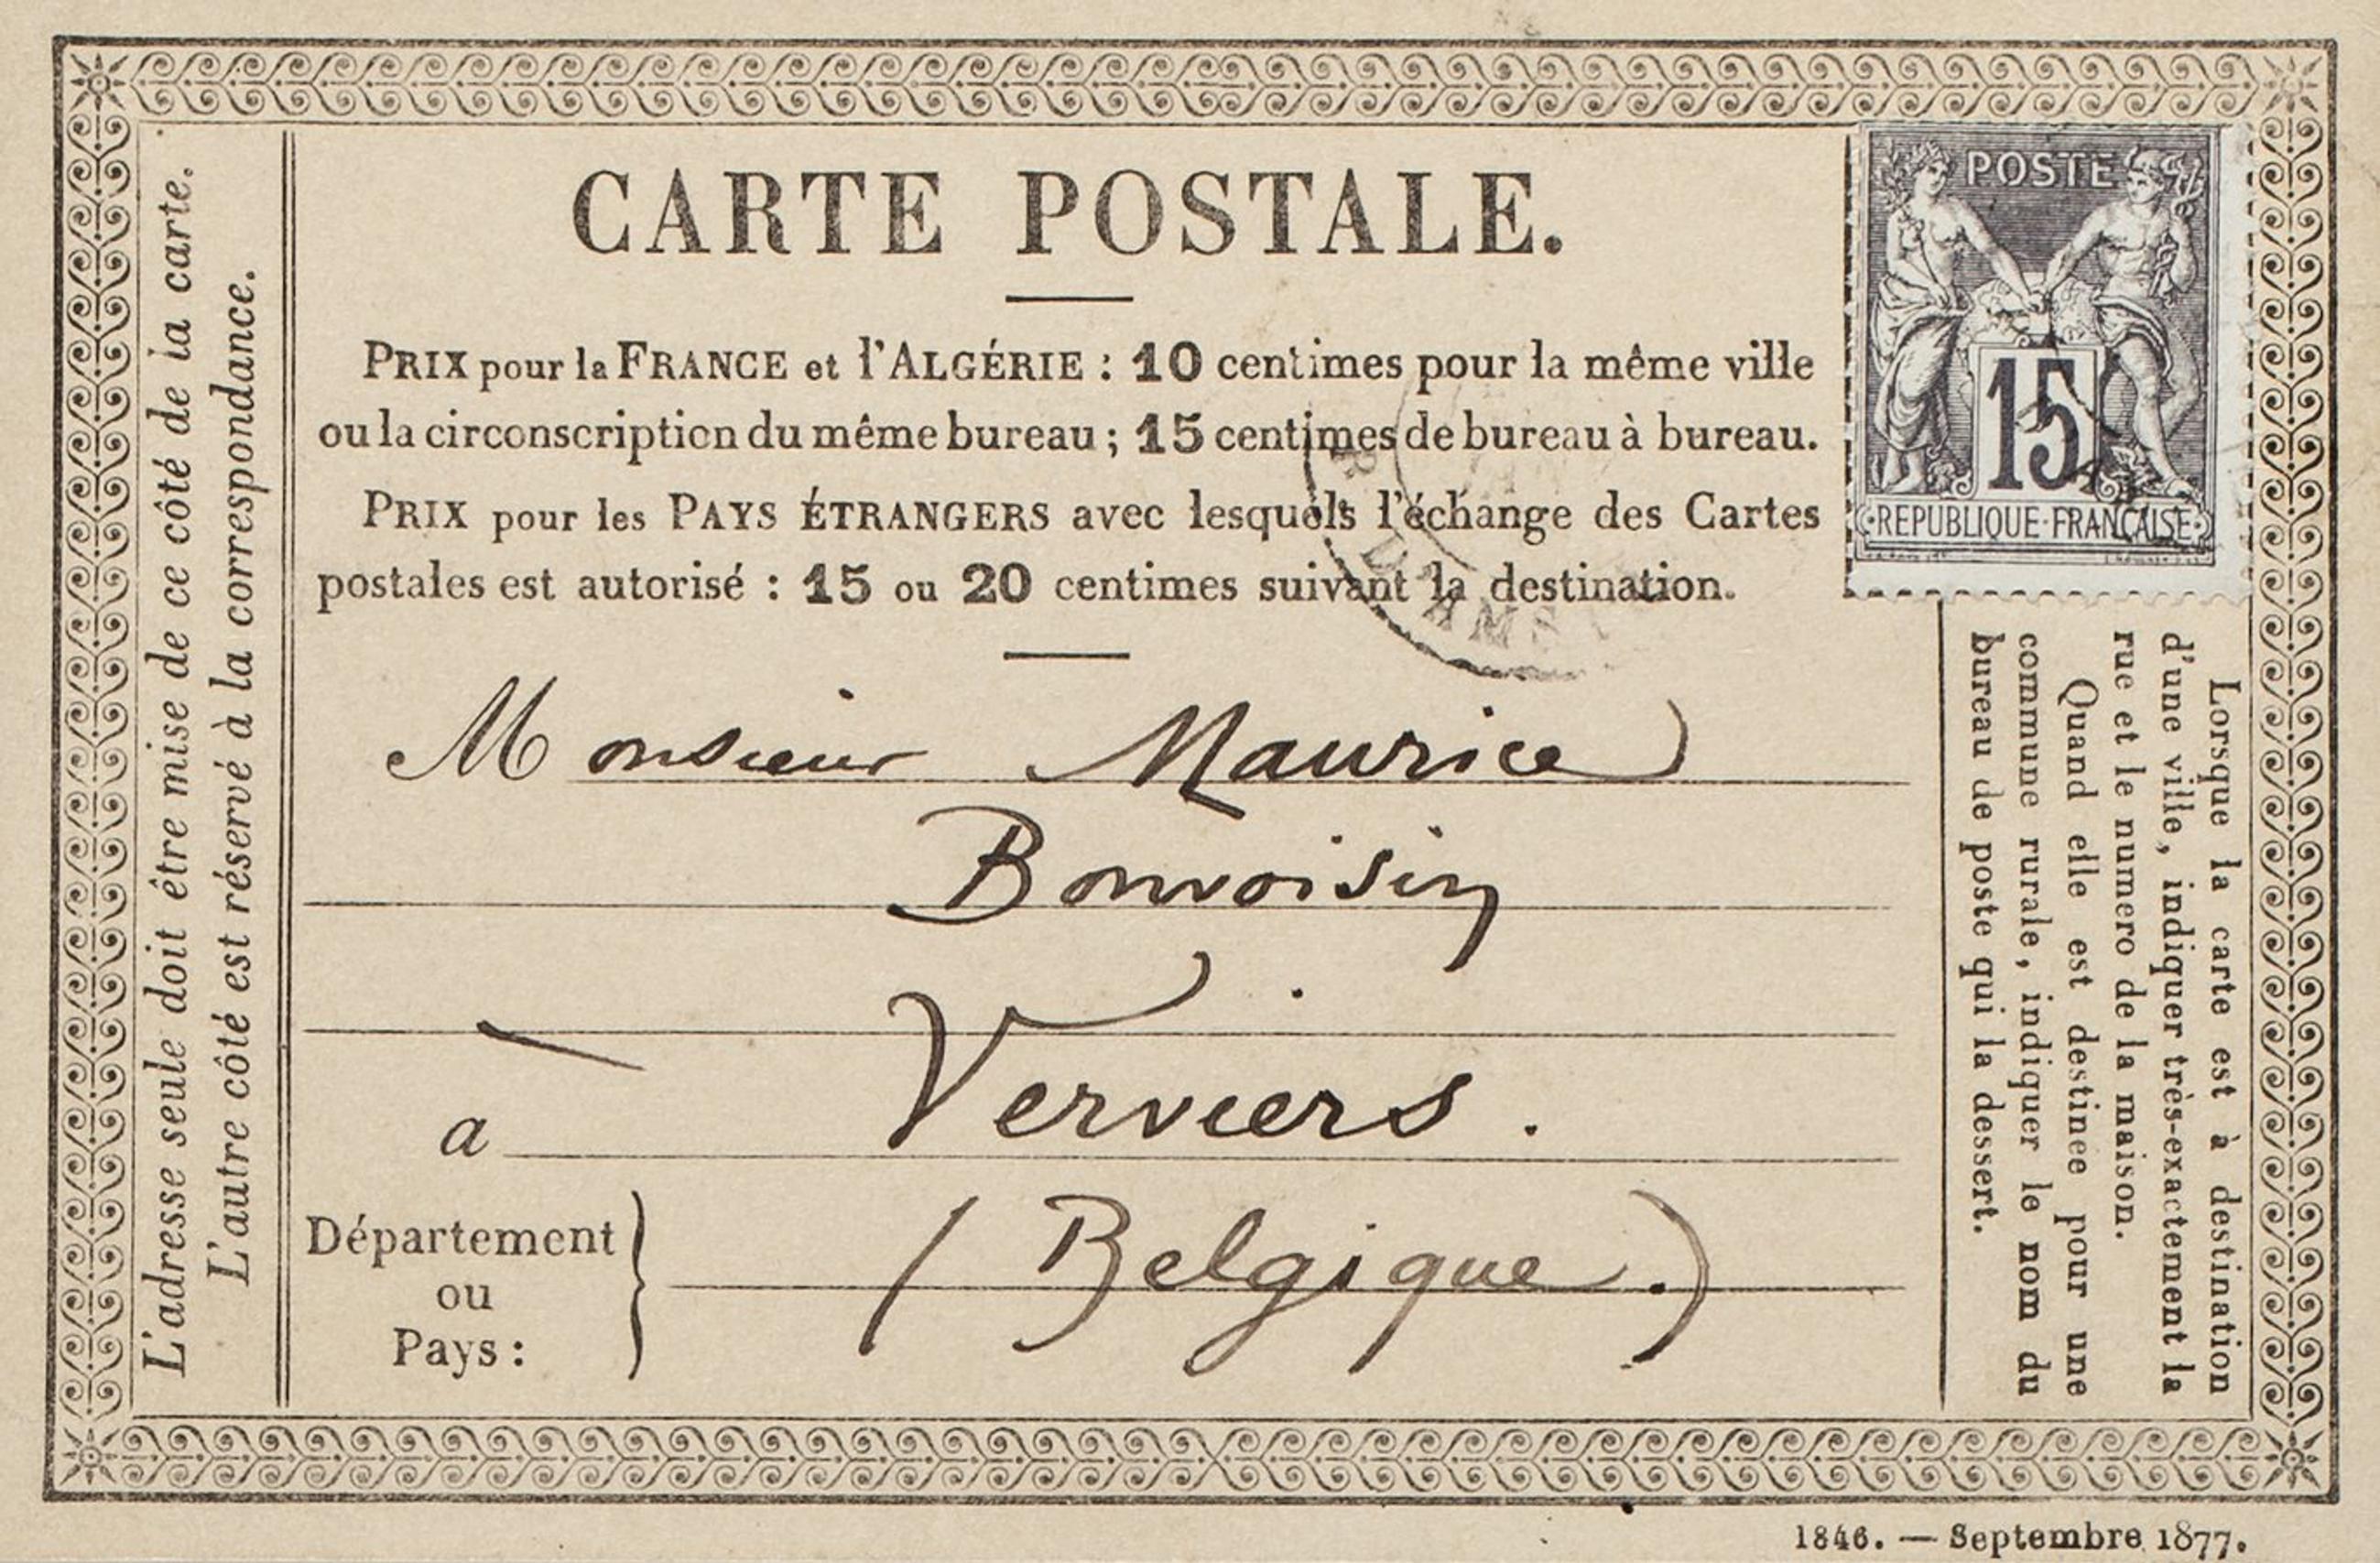 L'adresse seule doit être mise de ce côté de la carte.
L'autre côté est réservé à la correspondance.
CARTE POSTALE.
PRIX pour la FRANCE et l'ALGÉRIE : 10 centimes pour la même ville
ou la circonscription du même bureau ; 15 centimes de bureau à bureau.
PRIX pour les PAYS ÉTRANGERS avec lesquels l'échange des Cartes
postales est autorisé : 15 ou 20 centimes suivant la destination.
POSTE
15
REPUBLIQUE FRANÇAISE
Monsieur Maurice
Bonvoisin
a Verviers.
Département
ou
Pays :
(Belgique.)
Lorsque la carte est à destination
d'une ville, indiquer très-exactement la
rue et le numero de la maison.
Quand elle est destinée pour une
commune rurale, indiquer le nom du
bureau de poste qui la dessert.
1846. — Septembre 1877.